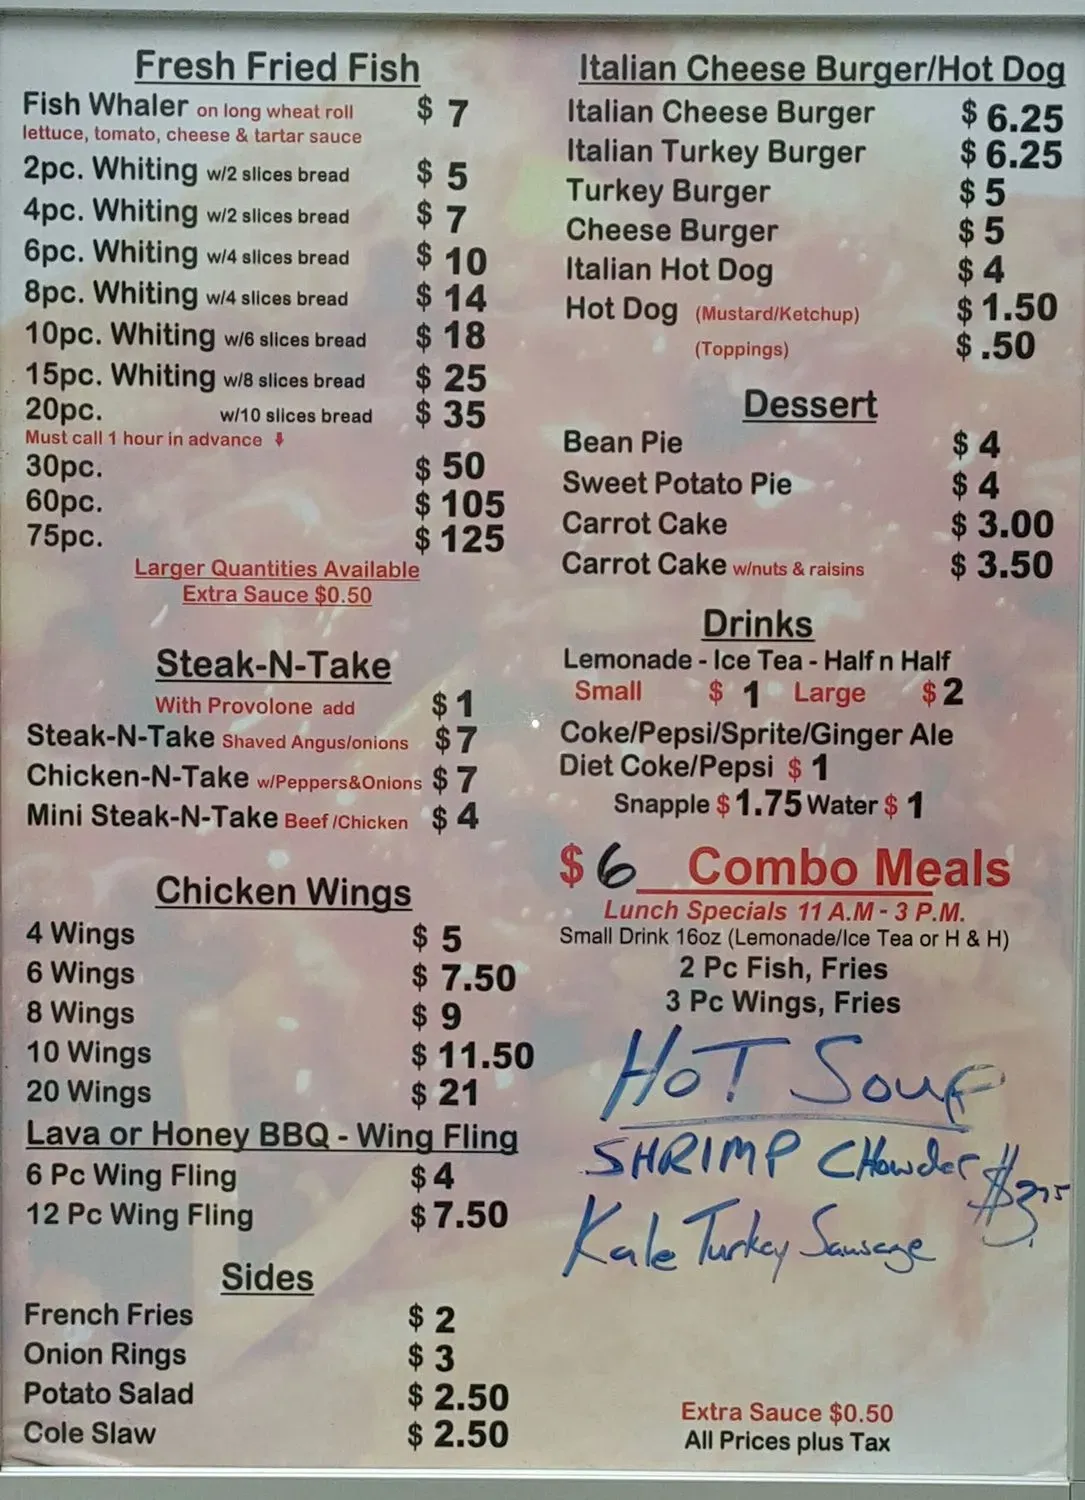 Fresh Fried Fish
Fish Whaler on long wheat roll $ 7
lettuce, tomato, cheese & tartar sauce
2pc. Whiting w/2 slices bread $ 5
4pc. Whiting w/2 slices bread $ 7
6pc. Whiting w/4 slices bread $ 10
8pc. Whiting w/4 slices bread $ 14
10pc. Whiting w/6 slices bread $ 18
15pc. Whiting w/8 slices bread $ 25
20pc. w/10 slices bread $ 35
Must call 1 hour in advance ⬇
30pc. $ 50
60pc. $ 105
75pc. $ 125
Larger Quantities Available
Extra Sauce $0.50
Steak-N-Take
With Provolone add $ 1
Steak-N-Take Shaved Angus/onions $ 7
Chicken-N-Take w/Peppers&Onions $ 7
Mini Steak-N-Take Beef /Chicken $ 4
Chicken Wings
4 Wings $ 5
6 Wings $ 7.50
8 Wings $ 9
10 Wings $ 11.50
20 Wings $ 21
Lava or Honey BBQ - Wing Fling
6 Pc Wing Fling $ 4
12 Pc Wing Fling $ 7.50
Sides
French Fries $ 2
Onion Rings $ 3
Potato Salad $ 2.50
Cole Slaw $ 2.50
Italian Cheese Burger/Hot Dog
Italian Cheese Burger $ 6.25
Italian Turkey Burger $ 6.25
Turkey Burger $ 5
Cheese Burger $ 5
Italian Hot Dog $ 4
Hot Dog (Mustard/Ketchup) $ 1.50
(Toppings) $ .50
Dessert
Bean Pie $ 4
Sweet Potato Pie $ 4
Carrot Cake $ 3.00
Carrot Cake w/nuts & raisins $ 3.50
Drinks
Lemonade - Ice Tea - Half n Half
Small $ 1 Large $ 2
Coke/Pepsi/Sprite/Ginger Ale
Diet Coke/Pepsi $ 1
Snapple $ 1.75 Water $ 1
$ 6 Combo Meals
Lunch Specials 11 A.M - 3 P.M.
Small Drink 16oz (Lemonade/Ice Tea or H & H)
2 Pc Fish, Fries
3 Pc Wings, Fries
HOT SOUP
SHRIMP CHowder $3.75
Kale Turkey Sausage
Extra Sauce $0.50
All Prices plus Tax